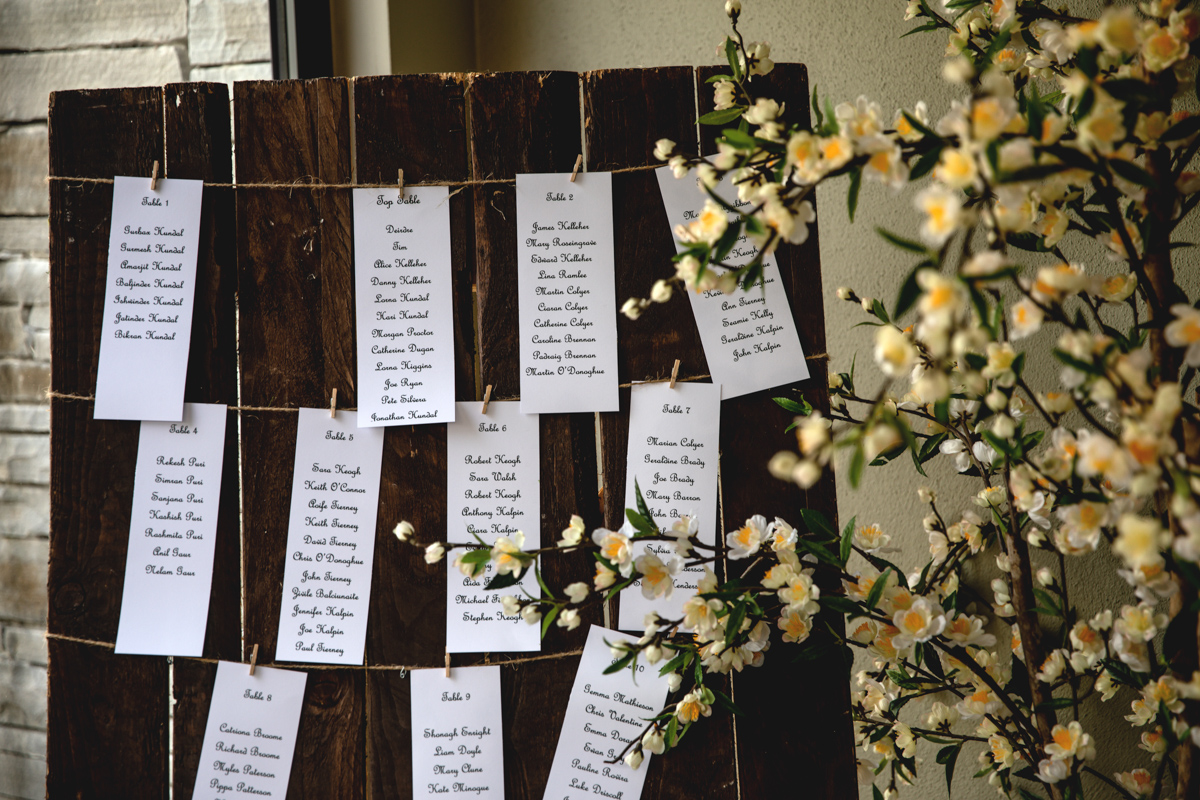 Table 1
Gurbax Hundal
Gurmesh Hundal
Amarjit Hundal
Baljinder Hundal
Ishwinder Hundal
Jatinder Hundal
Bikran Hundal
Top Table
Deirdre
Tim
Alice Kelleher
Danny Kelleher
Lorna Hundal
Hari Hundal
Morgan Proctor
Catherine Dugan
Lorna Higgins
Joe Ryan
Pete Silvera
Jonathan Hundal
Table 2
James Kelleher
Mary Roseingrave
Edward Kelleher
Lina Ramlee
Martin Colyer
Ciaran Colyer
Catherine Colyer
Caroline Brennan
Padraig Brennan
Martin O'Donoghue
Donoghue
Ann Tierney
Seamie Kelly
Geraldine Halpin
John Halpin
Table 4
Rekesh Puri
Simran Puri
Sanjana Puri
Kashish Puri
Rashmita Puri
Anil Gaur
Nelam Gaur
Table 5
Sara Keogh
Keith O'Connor
Aoife Tierney
Keith Tierney
David Tierney
Chris O'Donoghue
John Tierney
Zivile Balciunaite
Jennifer Halpin
Joe Halpin
Paul Tierney
Table 6
Robert Keogh
Sara Walsh
Robert Keogh
Anthony Halpin
Ciara Halpin
Michael
Stephen Keogh
Table 7
Marian Colyer
Geraldine Brady
Joe Brady
Mary Barron
John
Sylvia
Table 8
Catriona Broome
Richard Broome
Myles Paterson
Pippa Patterson
Table 9
Shonagh Enright
Liam Doyle
Mary Clune
Kate Minogue
10
Gemma Mathieson
Chris Valentine
Emma
Ewan
Pauline Rovira
Luke Driscoll